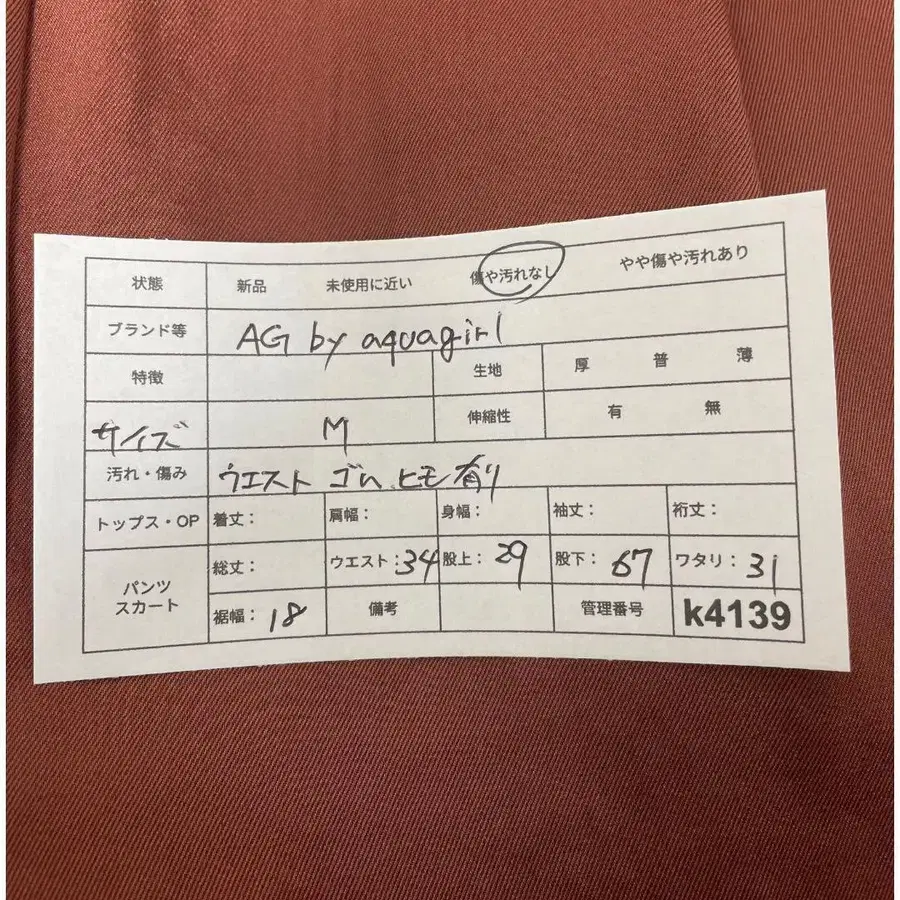 状態 新品 未使用に近い 傷や汚れなし やや傷や汚れあり
ブランド等 AG by aquagirl
特徴 生地 厚 普 薄
サイズ M 伸縮性 有 無
汚れ・傷み ウエスト ゴム ヒモ 有り
トップス・OP 着丈: 肩幅: 身幅: 袖丈: 裄丈:
パンツ スカート 総丈: ウエスト:34 股上:29 股下:67 ワタリ:31
裾幅:18 備考 管理番号 k4139